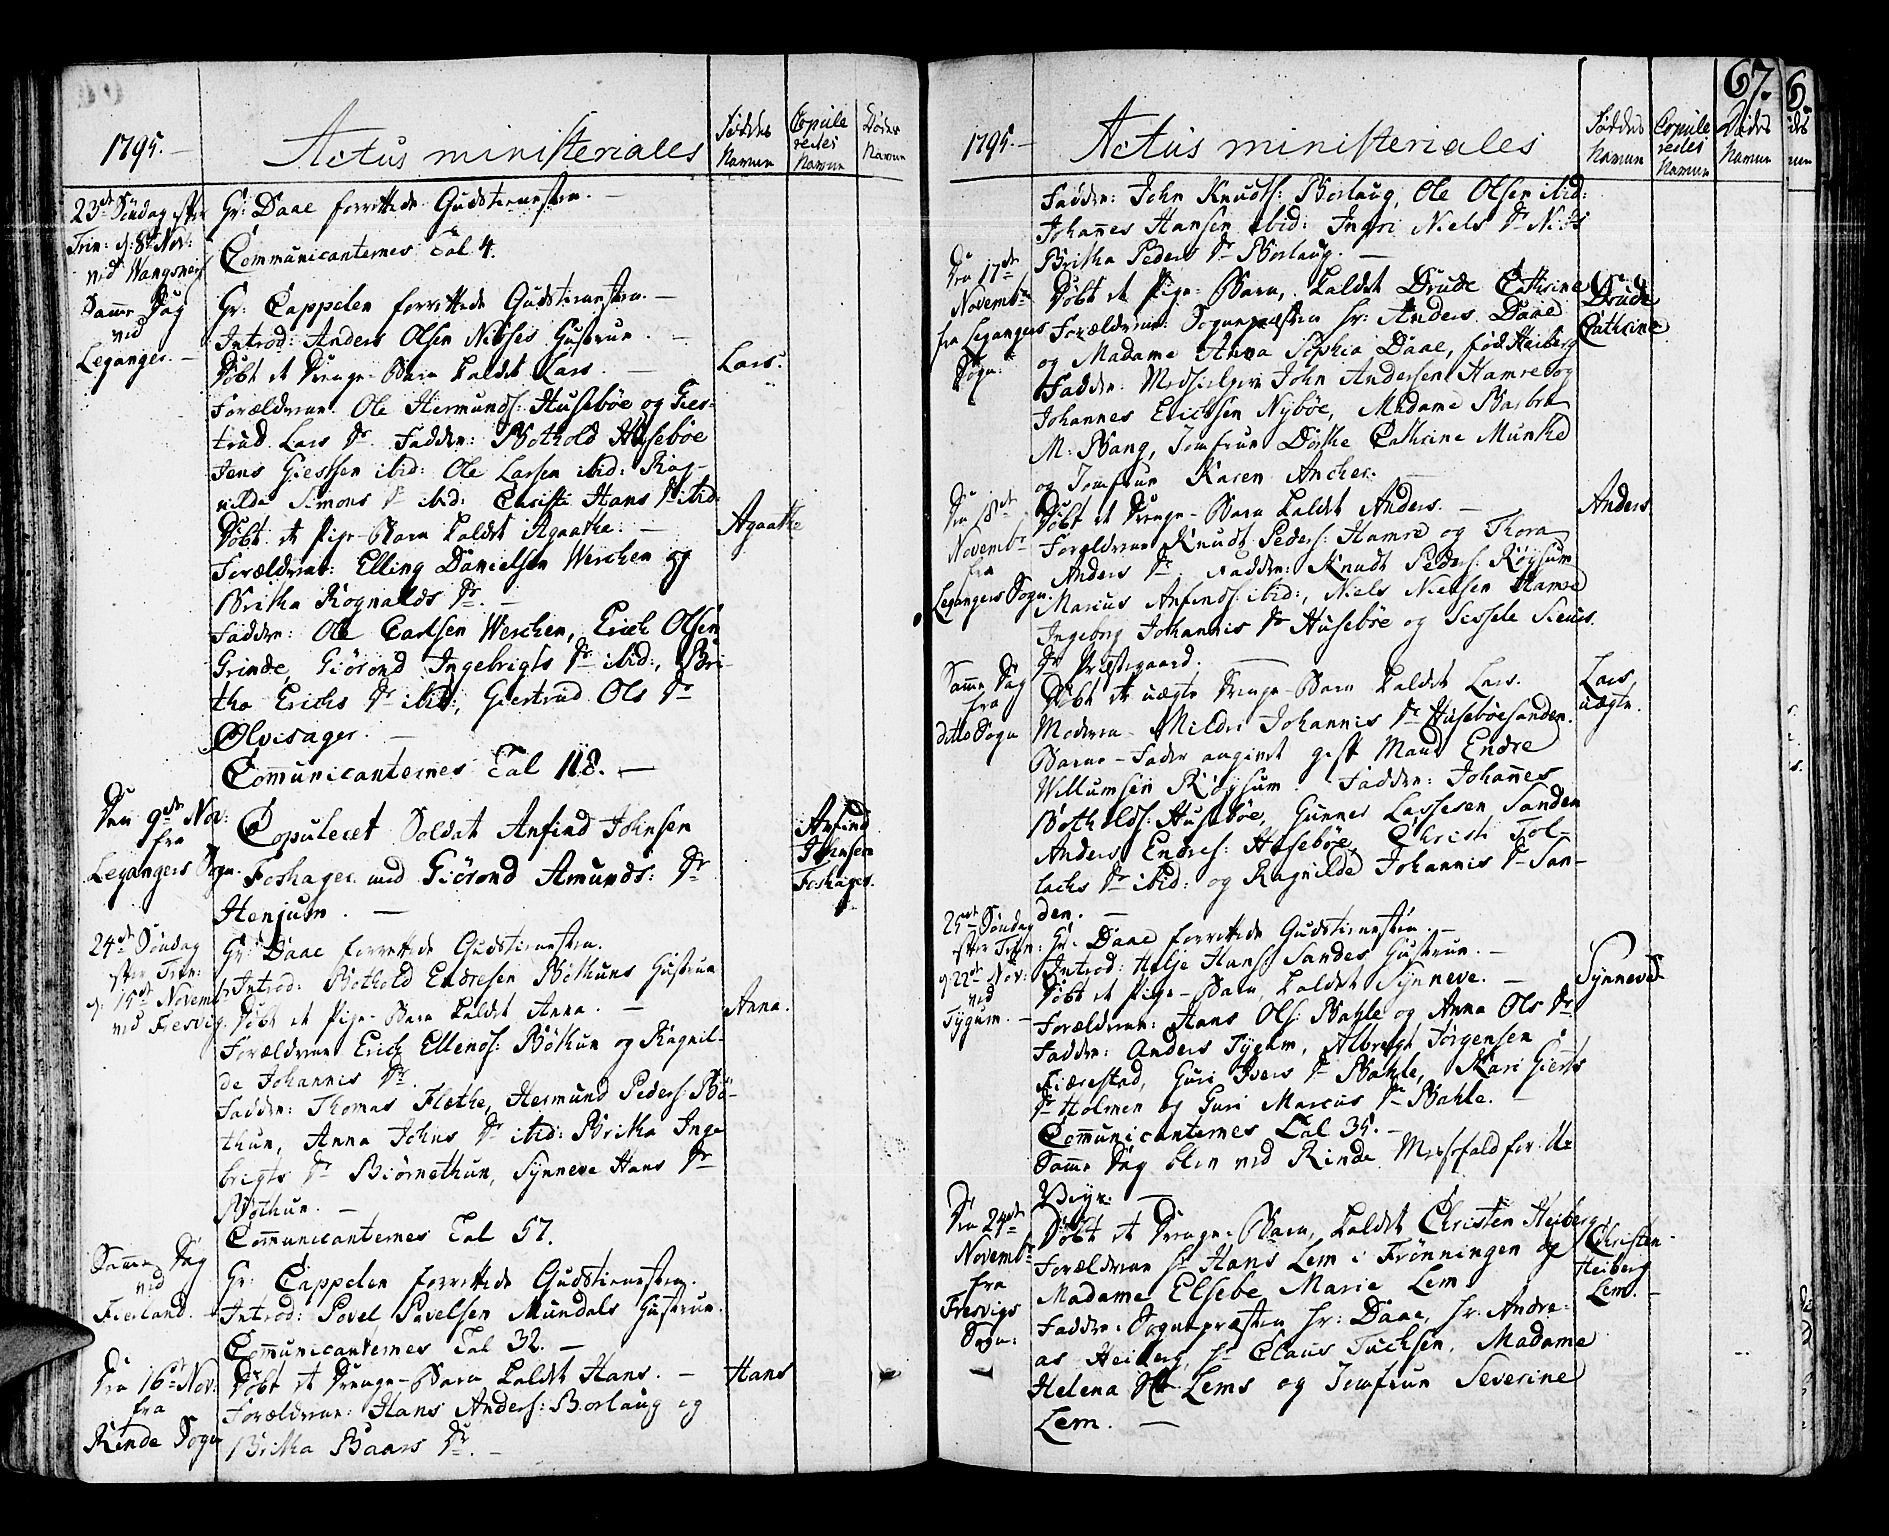 1795.
Actus ministeriales
Føddes Navne
Copule redes Navne
Dødes Navne
23de Søndag efter
Trin: d: 8de Nov:
ved Wangsnes
Hr: Daae forrettede Gudstienesten.
Communicanternes Tal 4.
Samme Dag
ved
Leganger.
Hr: Cappelen forrettede Gudstienesten.
Introd: Anders Olsen Hustrue.
Døbt et Drenge-Barn kaldet Lars.
Lars.
Forældrene Ole Hermunds: Husebøe og Gier-
trud Lars Dr Faddere: Bothold Husebøe
Jens Giertsen ibid: Ole Larsen ibid: Rag-
nilde Simons Dr ibid: Christi Hans Dr ibid:
Døbt et Pige-Barn kaldet Agaathe.
Agaathe
Forældrene: Elling Danielsen Werchen og
Britha Rognalds Dr.
Faddere: Ole Carlsen Werchen, Erich Olsen
Grinde, Giørond Ingebrigts Dr ibid:, Bri-
tha Erichs Dr ibid:, Giertrud Ols Dr
Ølvisager.
Communicanternes Tal 118.
Den 9de Nov:
fra
Legangers Sogn.
Copuleret Soldat Anfind Johnsen
Foshager med Giørond Amunds: Dr
Henjum.
Anfind
Johnsen
Foshager.
24de Søndag
efter Trin:
d: 15de Novembr
ved Fresvig.
Hr: Daae forrettede Gudstienesten.
Introd: Bothold Endresen Bøthuns Hustrue
Døbt et Pige-Barn kaldet Anna.
Anna.
Forældrene Erich Ellends: Bøthun og Ragnil-
de Johannis Dr.
Faddere: Thomas Flæthe, Hermund Peders: Bø-
thun, Anna Johns Dr ibid: Britha Inge
brigts Dr Biørnethun, Synneve Hans Dr
Bøthun.
Communicanternes Tal 57.
Samme Dag
ved
Fierland.
Hr: Cappelen forrettede Gudstienesten.
Introd: Povel Povelsen Mundals Hustrue.
Communicanternes Tal 32.
Den 16de Nov:
fra
Rinde Sogn
Døbt et Drenge-Barn kaldet Hans.
Hans
Forældrene: Hans Anders: Borlaug og
Britha Baars Dr.
67.
1795.
Actus ministeriales
Føddes Navne
Copule redes Navne
Dødes Navne
Faddere: John Knuds: Borlaug, Ole Olsen ibid:
Johannes Hansen ibid: Ingri Niels Dr
Britha Peders Dr Borlaug.
Den 17de
Novembr
fra Legangers
Sogn:
Døbt et Pige-Barn, kaldet Drude Cathrine
Drude
Cathrine
Forældrene: Sognepræsten Hr: Anders Daae
og Madame Anna Sophia Daae, fød Heiberg
Faddere: Medhielper John Andersen Hamre og
Johannes Erichsen Nybøe, Madame Barbra
M: Bang, Jomfrue Dørthe Cathrine Munthe
og Jomfrue Karen Ancher.
Den 18de
Novembr
fra
Legangers Sogn.
Døbt et Drenge-Barn kaldet Anders.
Anders.
Forældrene Knudt Peders: Hamre og Thora
Anders Dr. Faddere: Knudt Peders: Røysum
Marius Anfinds: ibid:, Niels Nielsen Hamre
Ingeborg Johannis Dr Husebøe og Sissele Siurs.
Dr Prestegaard.
Samme Dag
fra
ditto Sogn
Døbt et uægte Drenge-Barn kaldet Lars.
Lars,
uægte.
Moderen Mildri Johannis Dr Husebøesanden.
Barne-Fader angivet gift Mand Endre
Willumsen Røysum. Faddere: Johannes
Botholds: Husebøe, Gunner Lassesen Sanden
Anders Endres: Husebøe, Christi Tol-
lachs Dr ibid: og Ragnilde Johannis Dr San-
den.
25de Søndag
efter Trin:
d: 22de Nov:
ved
Tygum.
Hr: Daae forrettede Gudstienesten.
Introd: Helje Hans: Sandes Hustrue.
Døbt et Pige-Barn kaldet Synneve.
Synneve
Forældrene: Hans Ols: Bahle og Anna Ols Dr
Faddere: Anders Tygum, Albregt Jørgensen
Fiærestad, Guri Ivers Dr Bahle, Kari Gierts
Dr Holmen og Guri Marcus Dr Bahle.
Communicanternes Tal 35.
Samme Dag blev ved Rinde Messefald for Ur
Veyr.
Den 24de
Novembr
fra
Fresvigs
Sogn:
Døbt et Drenge-Barn, kaldet Christen Heiberg
Christen
Heiberg
Lem.
Forældrene Sr Hans Lem i Frønningen og
Madame Elsebe Marie Lem
Faddere: Sognepræsten Hr: Daae, Hr: Andre-
as Heiberg, Sr Claus Tuchsen, Madame
Helena Lems og Jomfrue Severine
Lem.